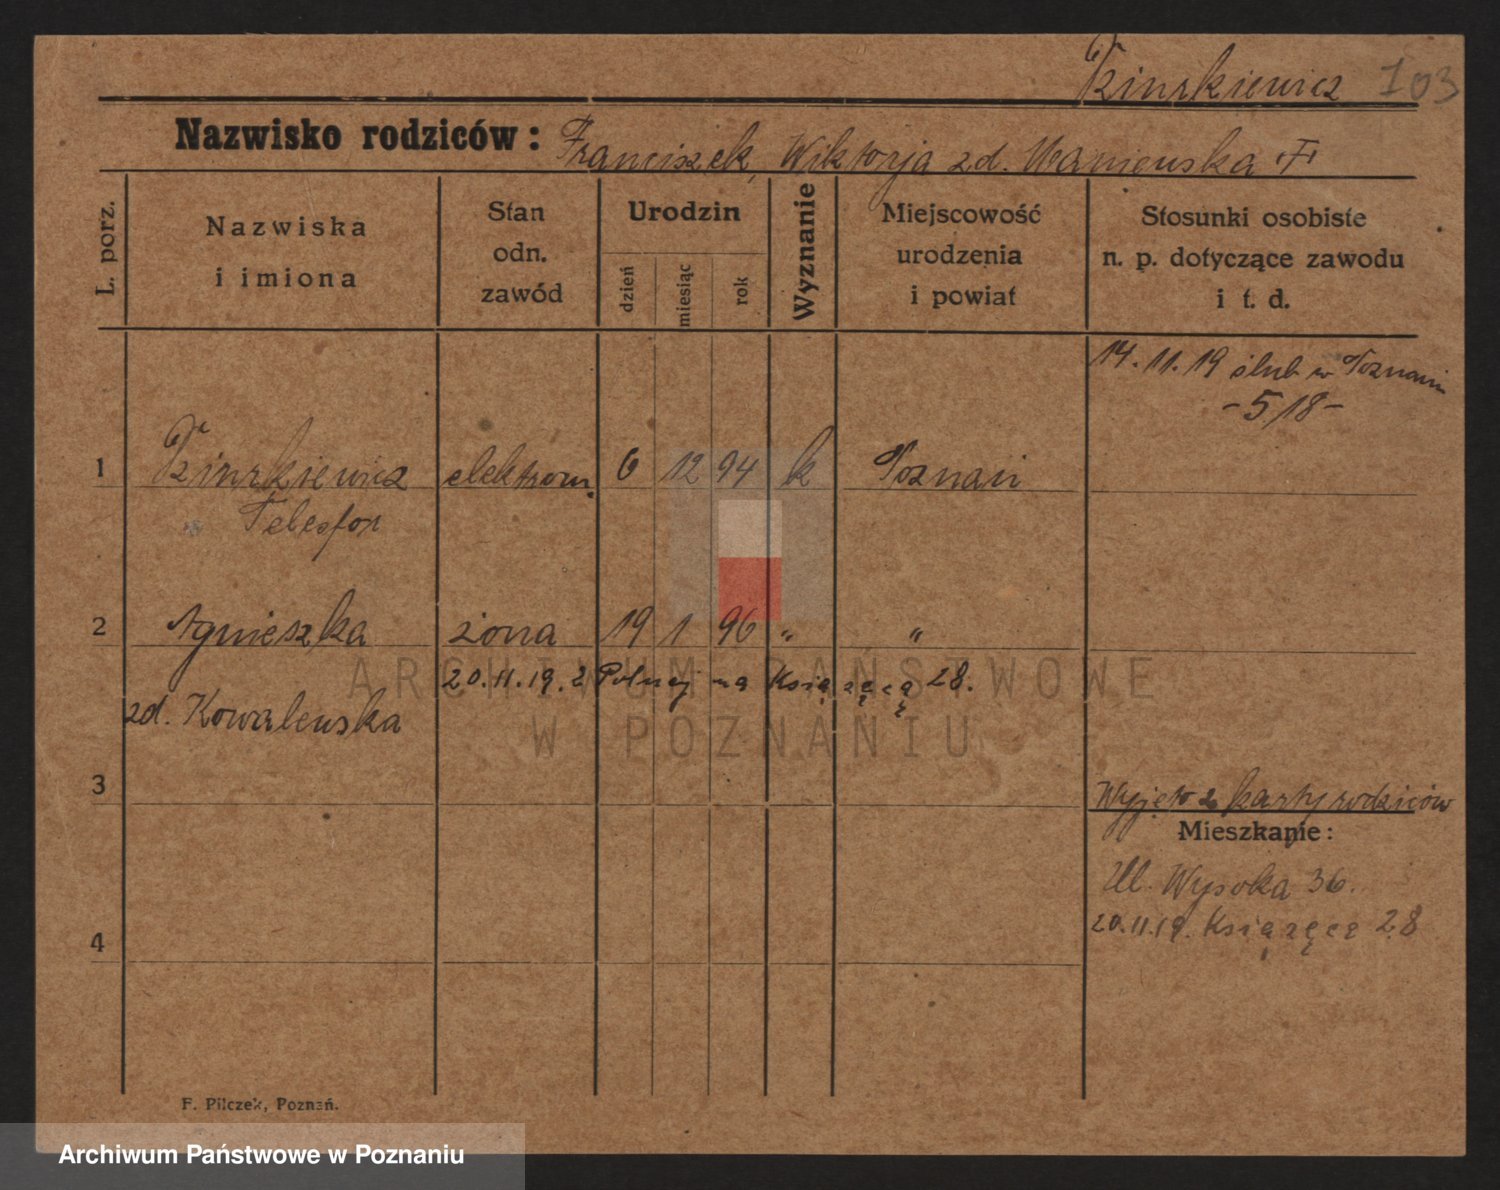 103
Nazwisko rodziców: Franciszek, Wiktorja zd.
L. porz.
Nazwiska i imiona
Stan odn. zawód
Urodzin
dzień
miesiąc
rok
Wyznanie
Miejscowość urodzenia i powiat
Stosunki osobiste n. p. dotyczące zawodu i t. d.
14. 11. 19 ślub w Poznaniu
- 518 -
1 elektrom. 6 12 94 k Poznań
Telesfor
2 Agnieszka żona 19 1 96 " "
20.11.19. z Polnej na Książęcą 28.
zd. Kowalewska
ARCHIWUM PAŃSTWOWE
W POZNANIU
3
Wyjęto z karty rodziców
Mieszkanie:
Ul. Wysoka 36.
20.11.19. Książęca 28
4
F. Pilczek, Poznań.
Archiwum Państwowe w Poznaniu